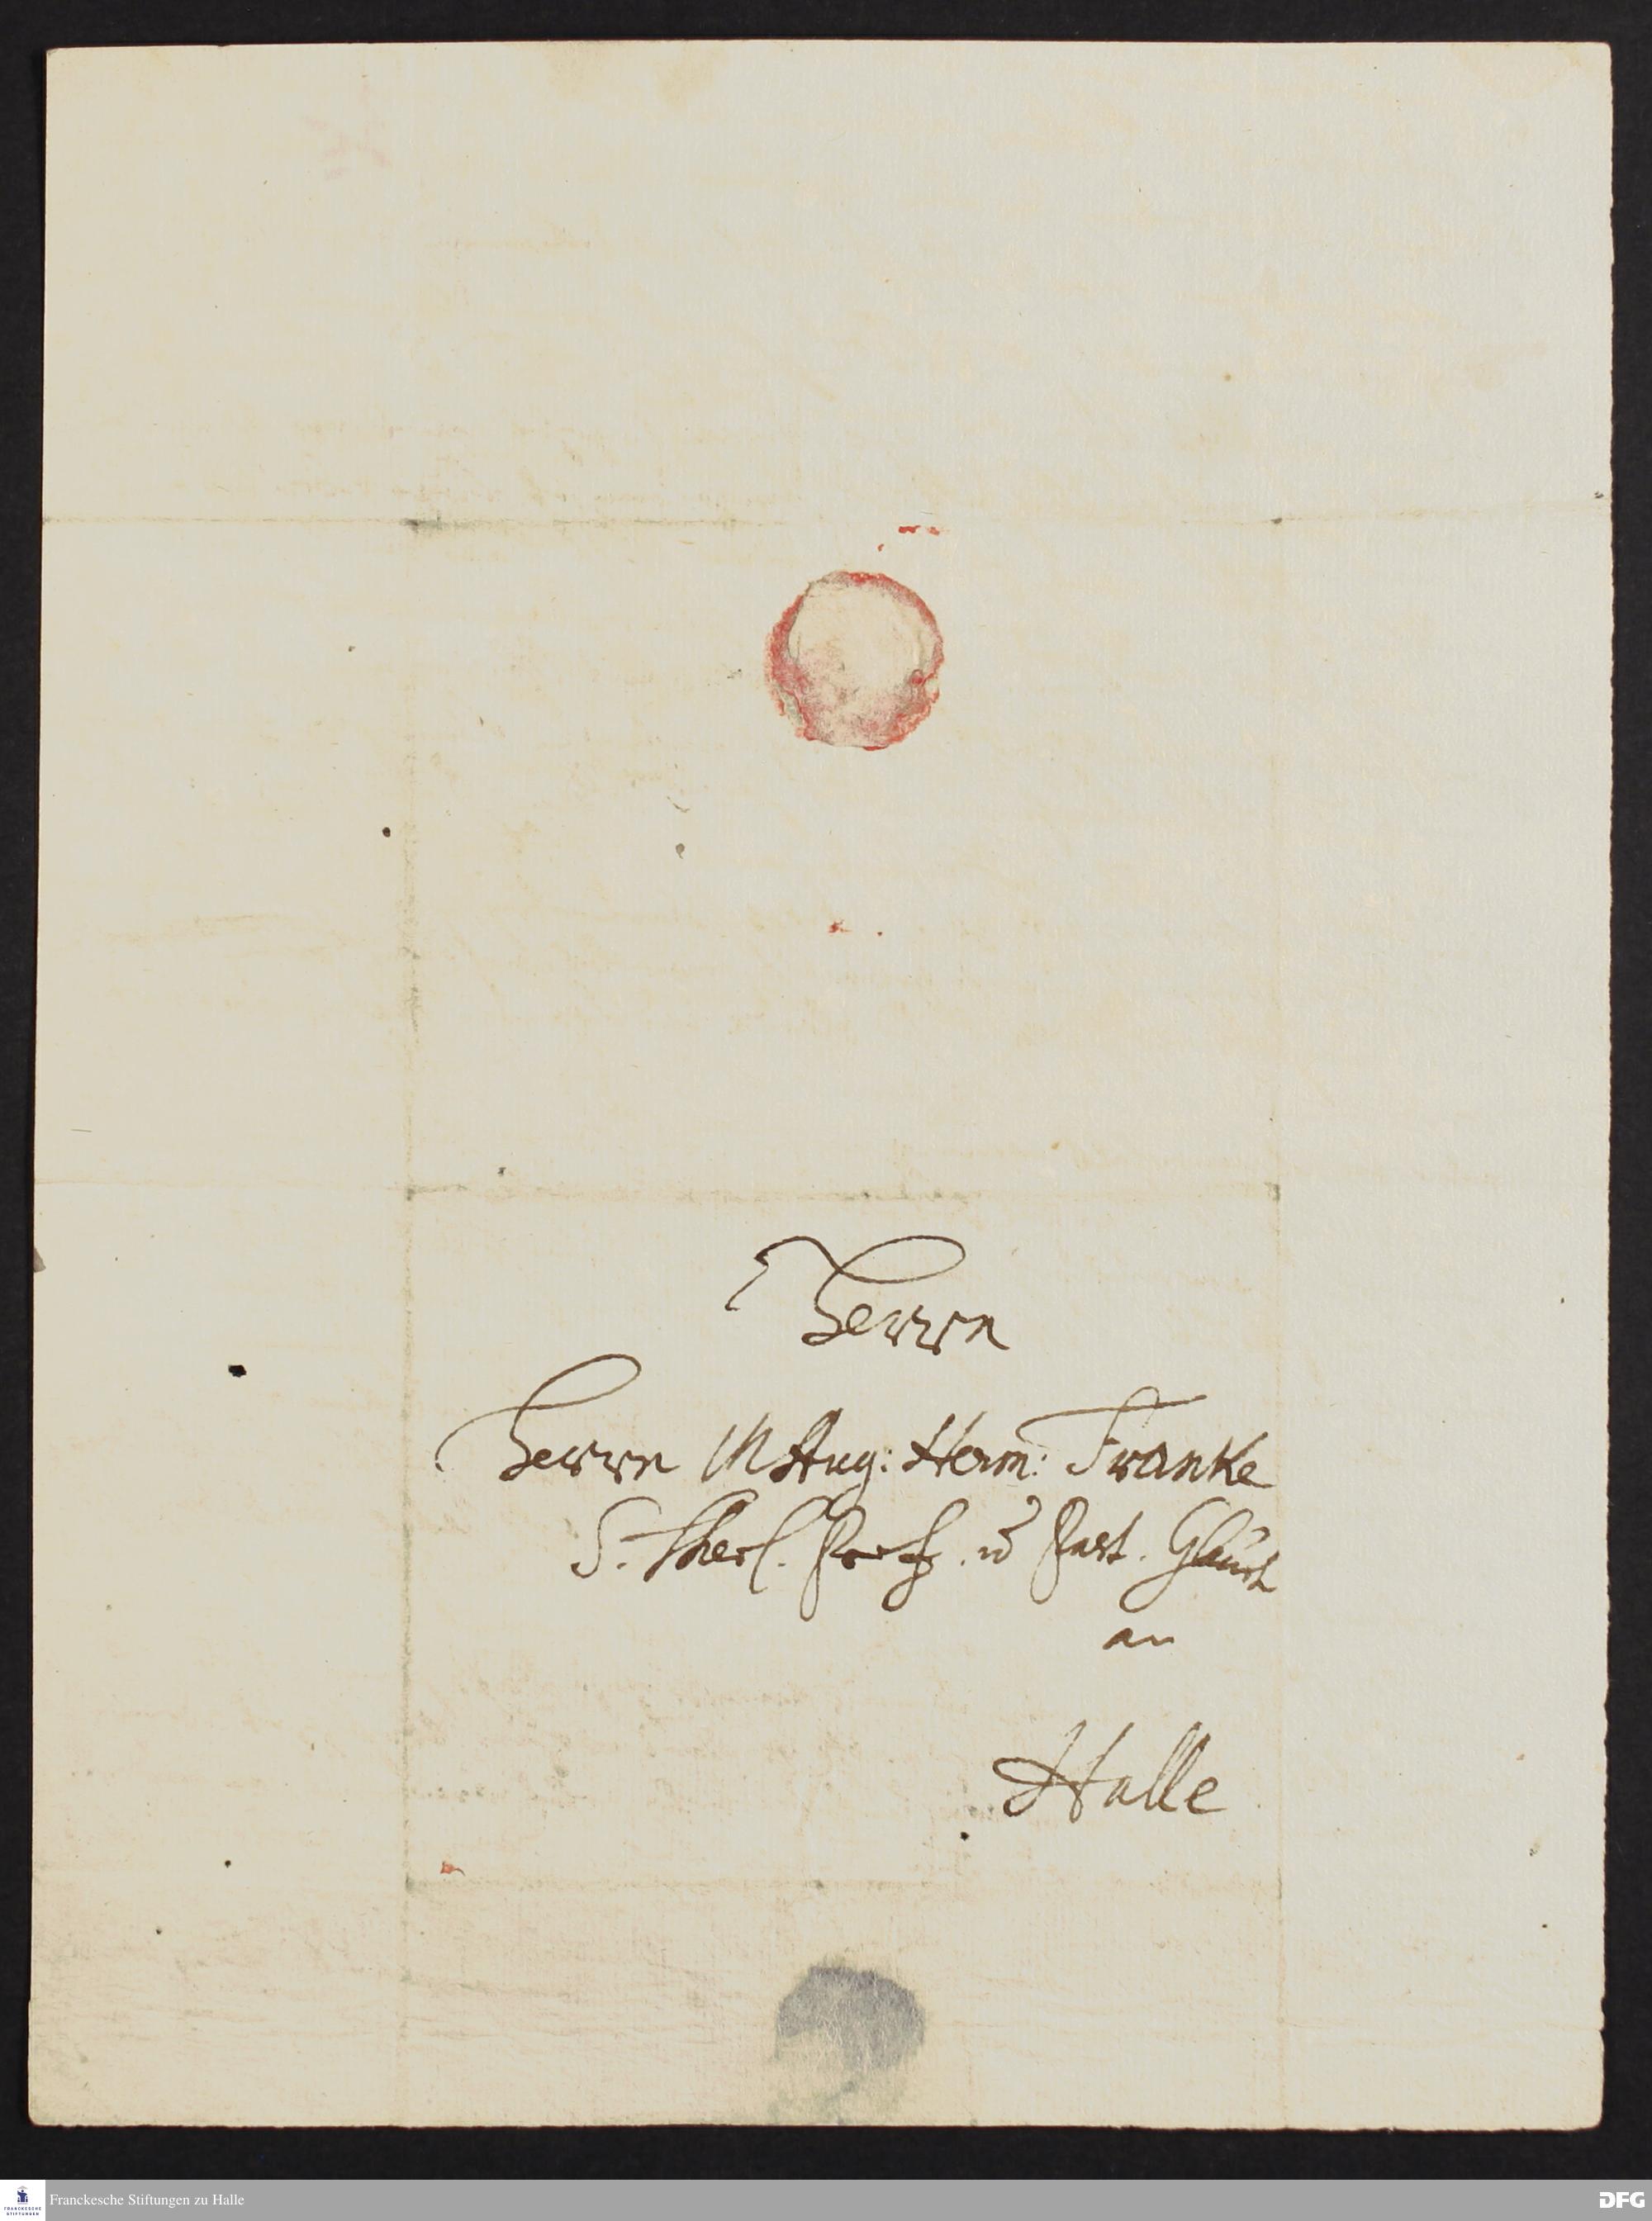 Herrn
Herrn M Aug: Herm: Franke
S. Theol. Prof. u Past. Glauch
an
Halle
Franckesche Stiftungen zu Halle
FRANCKESCHE
STIFTUNGEN
DFG